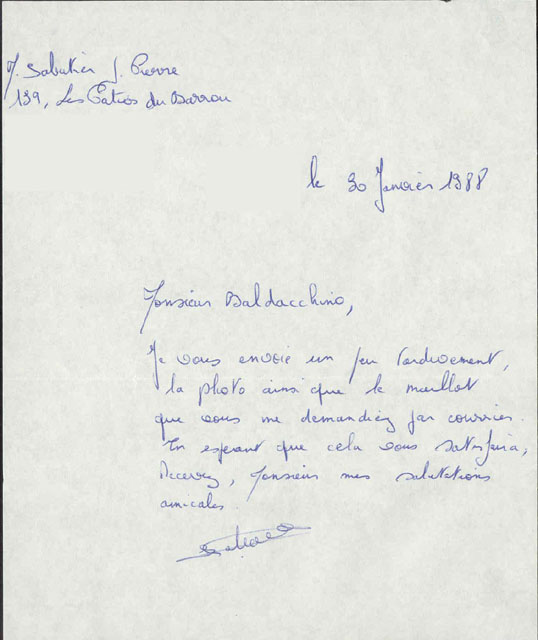 M. Sabatier J. Pierre
139, Les Patios du Barrou
le 30 Janvier 1988
Monsieur Baldacchino,
Je vous envoie un peu tardivement,
la photo ainsi que le maillot
que vous me demandiez par courrier.
En espérant que cela vous satisfera,
Recevez, Monsieur mes salutations
amicales.